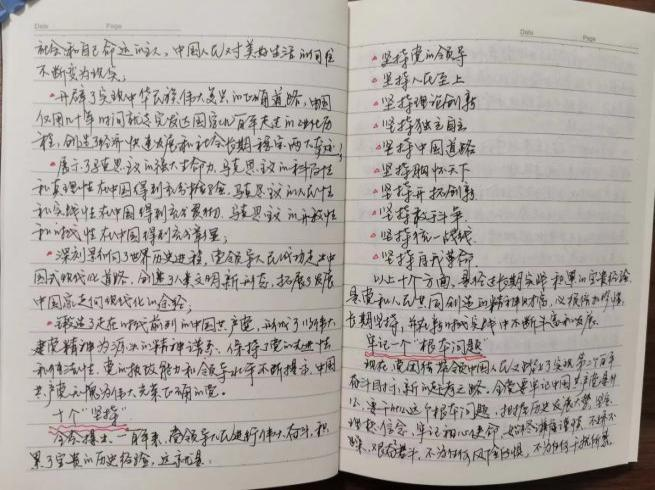 Date Page
社会和自己命运的主人，中国人民对美好生活的向往
不断变为现实；
·开辟了实现中华民族伟大复兴的正确道路，中国
仅用几十年时间就走完发达国家几百年走过的工业化历
程，创造了经济快速发展和社会长期稳定两大奇迹；
·展示了马克思主义的强大生命力，马克思主义的科学性
和真理性在中国得到充分检验，马克思主义的人民性
和实践性在中国得到充分贯彻，马克思主义的开放性
和时代性在中国得到充分彰显；
·深刻影响了世界历史进程，党领导人民成功走出中
国式现代化道路，创造了人类文明新形态，拓展了发展
中国家走向现代化的途径；
·锻造了走在时代前列的中国共产党，形成了以伟大
建党精神为源头的精神谱系，保持了党的先进性
和纯洁性，党的执政能力和领导水平不断提高，中国
共产党无愧为伟大光荣正确的党。
十个“坚持”
全会提出，一百年来，党领导人民进行伟大奋斗，积
累了宝贵的历史经验，这就是：
Date Page
·坚持党的领导
·坚持人民至上
·坚持理论创新
·坚持独立自主
·坚持中国道路
·坚持胸怀天下
·坚持开拓创新
·坚持敢于斗争
·坚持统一战线
·坚持自我革命
以上十个方面，是经过长期实践积累的宝贵经验，
是党和人民共同创造的精神财富，必须倍加珍惜、
长期坚持，并在新时代实践中不断丰富和发展。
牢记一个“根本问题”
现在，党团结带领中国人民又踏上了实现第二个百年
奋斗目标新的赶考之路。全党要牢记中国共产党是什
么、要干什么这个根本问题，把握历史发展大势，坚定
理想信念，牢记初心使命，始终谦虚谨慎、不骄不
躁、艰苦奋斗，不为任何风险所惧，不为任何干扰所惑